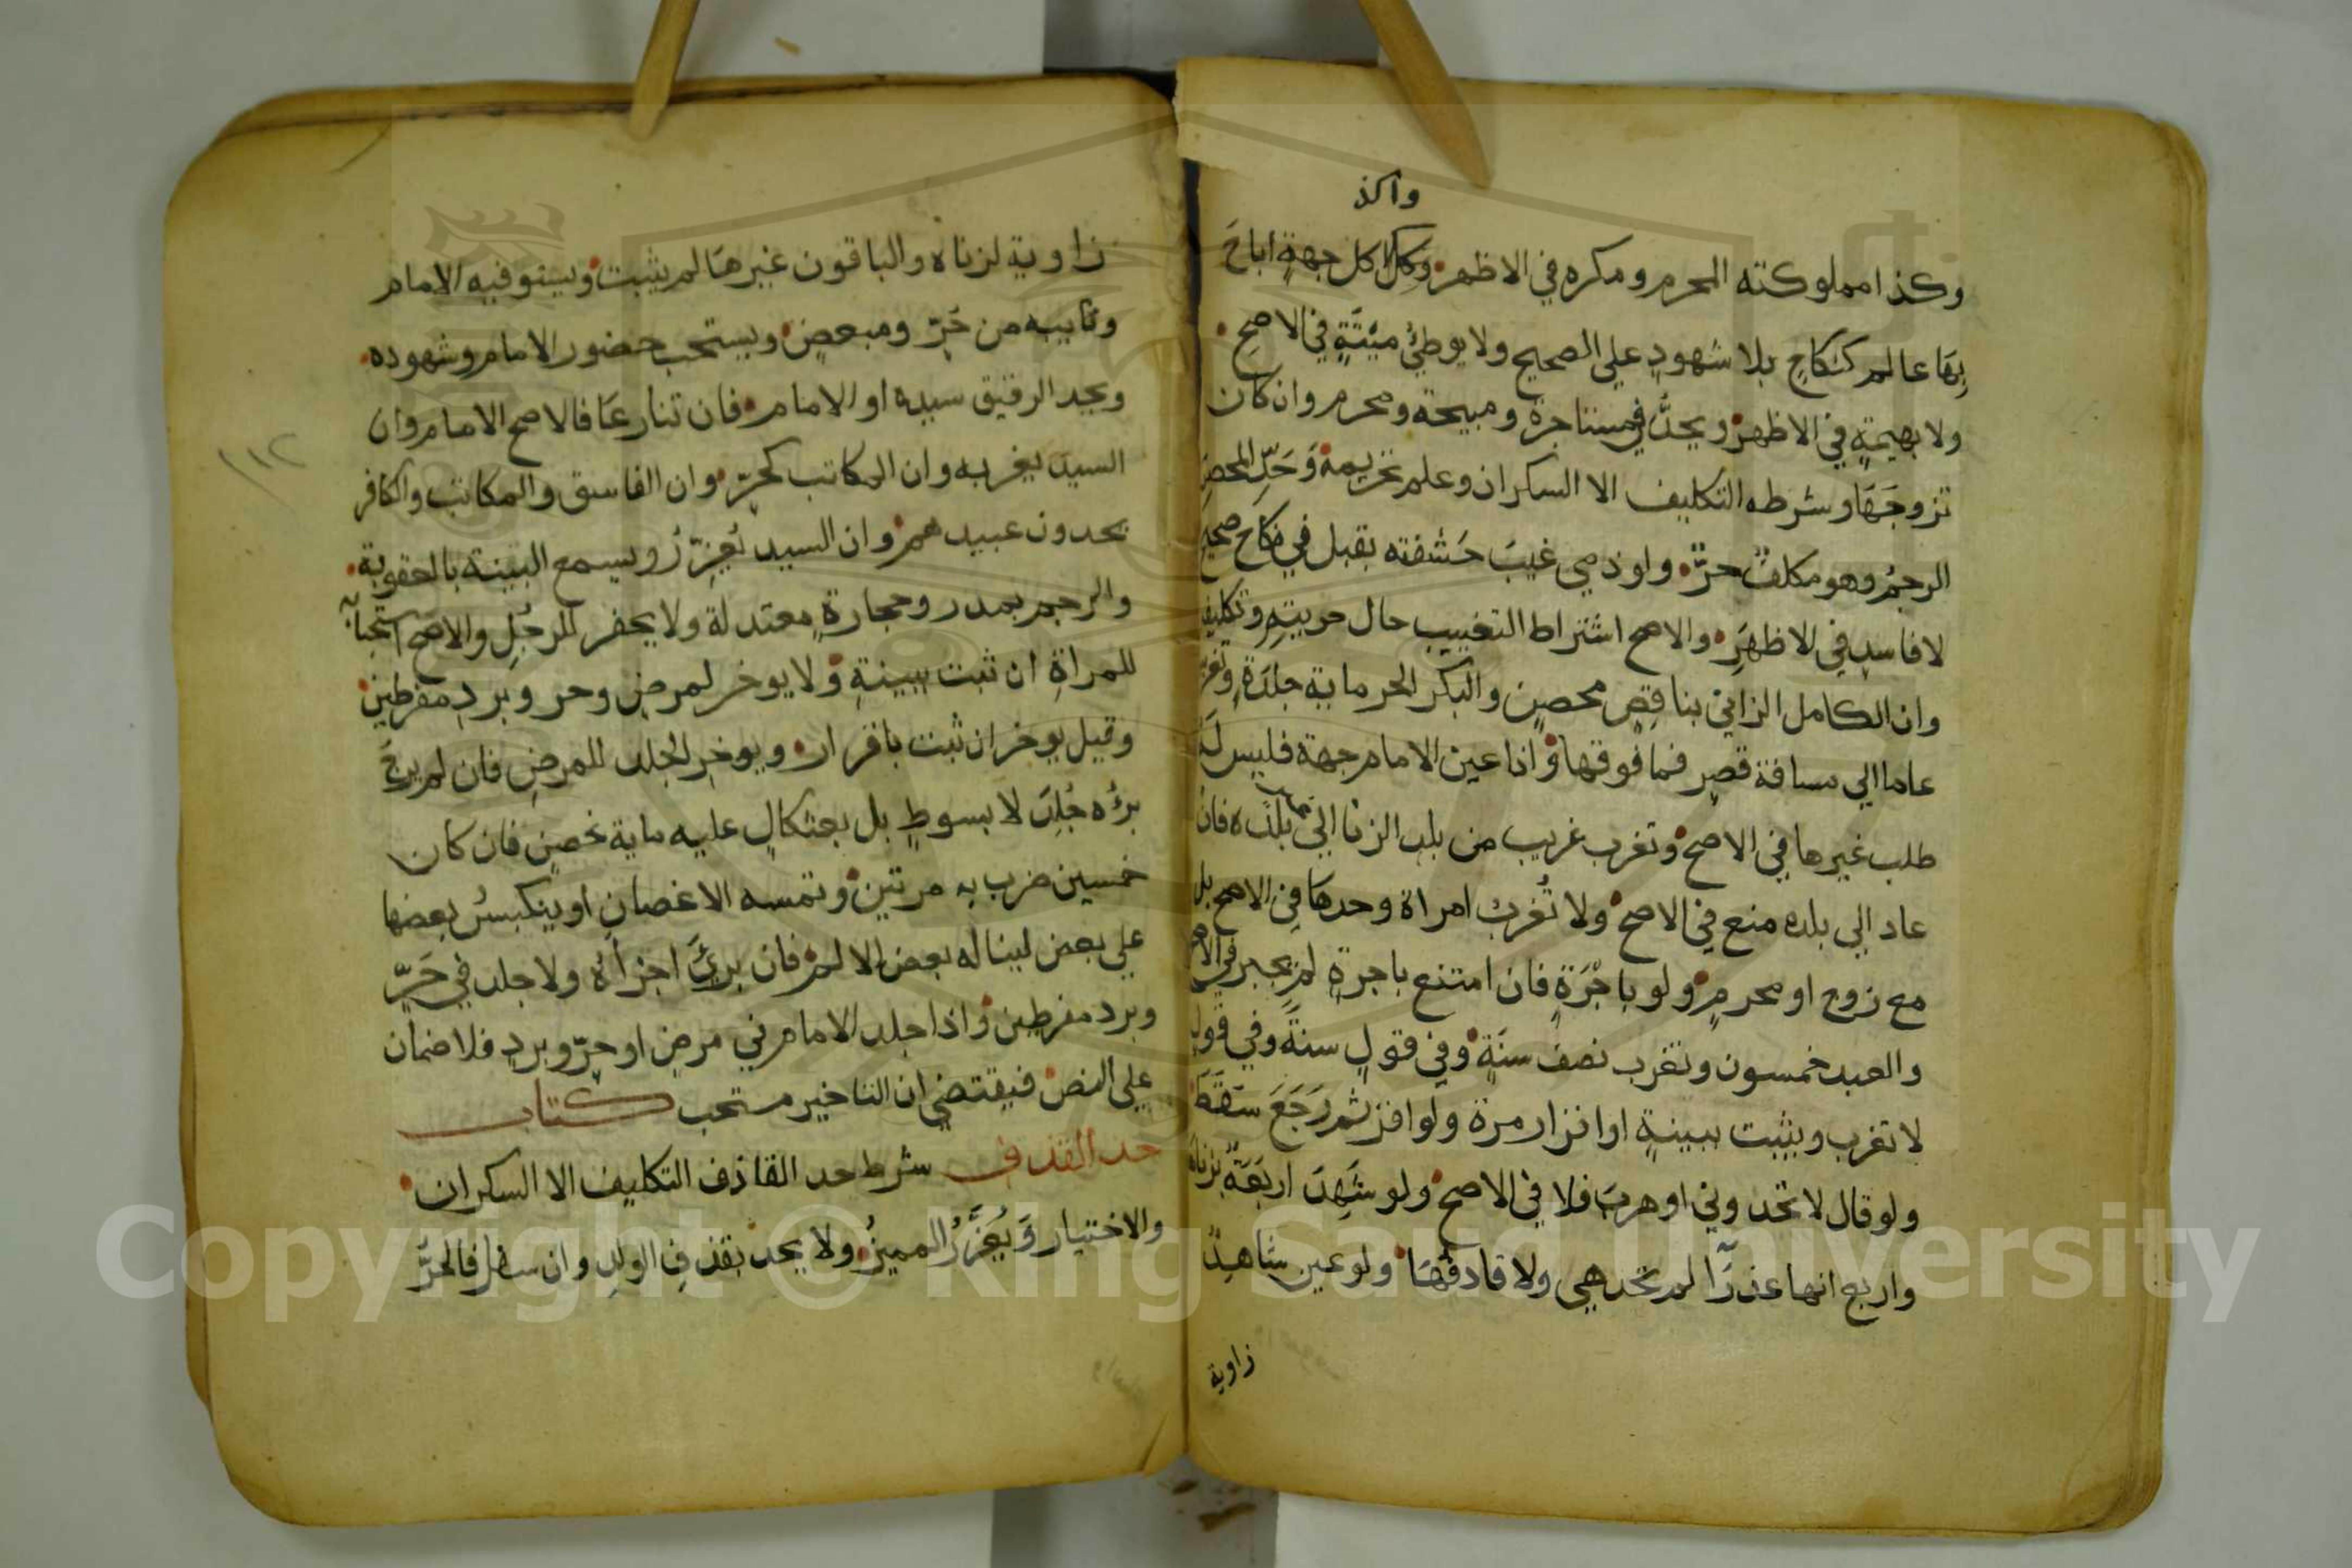 واكذ
وكذا مملوكته المحرم ومكره في الاظهر وكذا كل جهةٍ اباحَ
بِهَا عالم كنكاحٍ بلا شهودٍ علي الصحيح ولا بوطئِ ميْتَةٍ في الاصحِ
ولا بهيمةٍ في الاظهر ويحدُّ في مستاجرة ومبيحة ومحرم وان كان
تزوجَهَا وشرطه التكليف الا السكران وعلم تحريمه وَحَدِّ المحصن
الرجمُ وهو مكلفٌ حرٌّ ولو ذمي غيبَ حَشفته بقبل في نكاح صحيح
لا فاسدٍ في الاظهَرِ والاصح اشتراط التغييب حال حريتهِ وتكليفه
وان الكامل الزاني بناقِصٍ محصن والبكر الحر ماية جلدَةٍ وتغريب
عاما الي مسافة قصرٍ فما فوقها واذا عين الامام جهة فليس لَهُ
طلب غيرها في الاصح وتغرب غريب من بلد الزنا الي بلده فان
عاد الي بلده منع في الاصح ولا تُغربُ امراة وحدها في الاصح بل
مع زوج او محرمٍ ولو باجْرَةٍ فان امتنع باجرةٍ لم يجبر في الاصح
والعبد خمسون وتغرب نصف سنَةٍ وفي قولٍ سنةً وفي قولٍ
لا تغرب ويثبت ببينةٍ او اقرار مرة ولو اقر ثم رَجَعَ سَقَطَ
ولو قال لا تحدوني او هربَ فلا في الاصح ولو شَهِدَ اربَعَةٌ بزناها
واربع انها عذرآ لم تحد هي ولا قاذفُهَا ولو عين شاهِدٌ
زاوية
زاوية لزناه والباقون غيرهَا لم يثبت ويستوفيه الامام
ونايبه من حَرّ ومبعضٍ ويستحب حضور الامام وشهوده
ويحد الرقيق سيده او الامام فان تنازعَا فالاصح الامام وان
السيد يغربه وان المكاتب كحرّ وان الفاسق والمكاتب والكافر
يحدون عبيدهم وان السيد يُعزِّرُ ويسمع البينة بالعقوبة
والرجم بمدر وحجارةٍ معتدلة ولا يحفر للرجُلِ والاصح استحبابه
للمراةِ ان ثبت ببينةٍ ولا يوخر لمرضٍ وحر وبردٍ مفرطين
وقيل يوخر ان ثبت باقرار ويوخر الجلد للمرضِ فان لم يرجَ
برؤه جُلِدَ لا بسوطٍ بل بعثكالٍ عليه ماية غصنٍ فان كان
خمسين ضرب به مرتين وتمسه الاغصان او ينكبسُ بعضها
علي بعض ليناله بعض الالم فان بريَ اجزاهُ ولا جلد في حَرّ
وبرد مفرطين واذا جلد الامام في مرضٍ او حرّ وبردٍ فلا ضمان
علي النص فيقتضي ان التاخير مستحب كتاب
حد القذف شرط حد القاذف التكليف الا السكران
والاختيار وَيُعَزَّرُ المميزُ ولا يحد بقذفِ الولدِ وان سفل فالحرُّ
١١٢